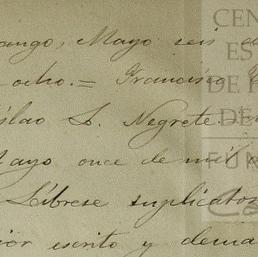 ango, Mayo seis d
ocho.= Francisco
slao S. Negrete.=
Mayo once de mil
Líbrese suplicato
ior escrito y dema
CEN
ES
DE H
DE
FUN